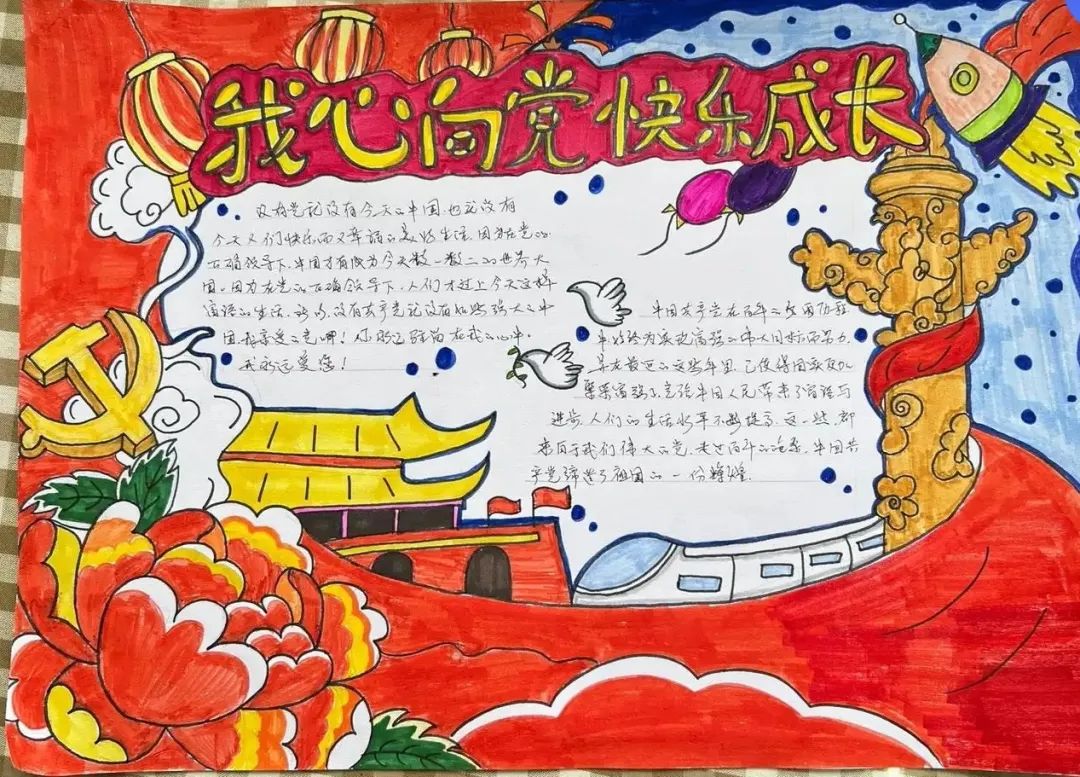 我心向党 快乐成长
没有党就没有今天的中国,也就没有
今天人们快乐而又幸福的美好生活,因为在党的
正确领导下,中国才有成为今天数一数二的世界大
国,因为在党的正确领导下,人们才过上今天这样
幸福的生活,没有共产党就没有如此强大的中
国,我亲爱的党啊!你永远驻留在我的心中,
我永远爱您!
中国共产党在百年的
中,始终为实现
年里,已使得国家
繁荣富强,中国人民带来了幸福与
进步,人们的生活水平不断提高,这一些,都
来自于我们伟大的党,走过百年的,中国共
产党缔造了祖国的一份辉煌